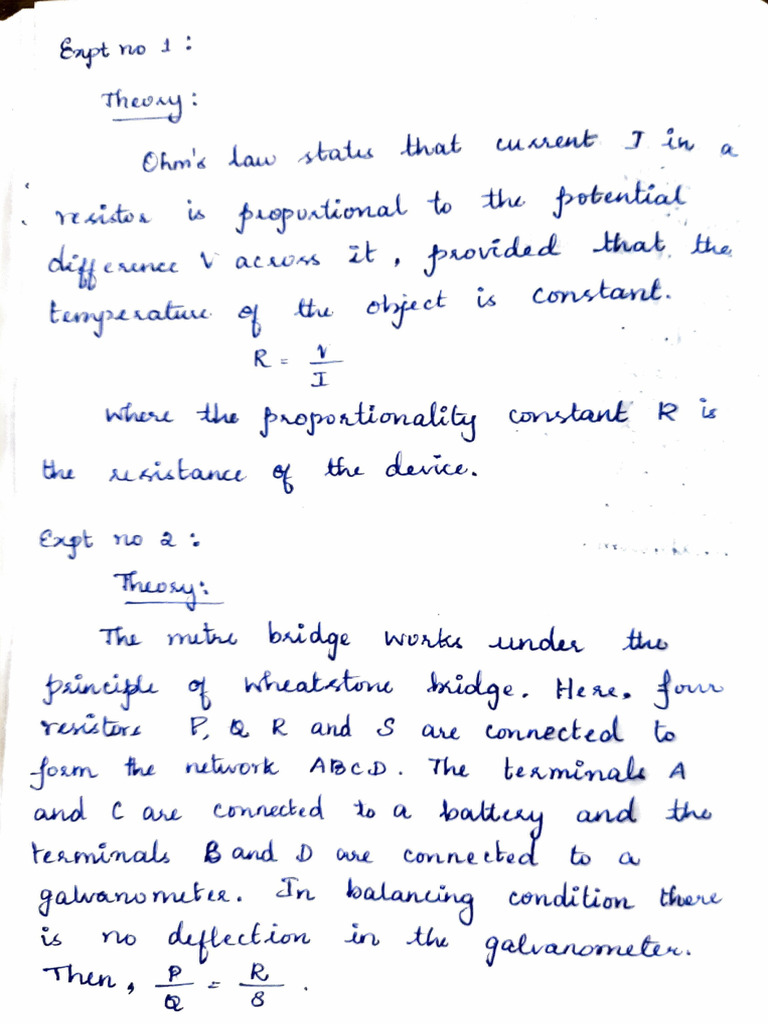 Expt no 1 :
Theory :
Ohm's law states that current I in a
resistor is proportional to the potential
difference V across it, provided that the
temperature of the object is constant.
R = V/I
where the proportionality constant R is
the resistance of the device.
Expt no 2 :
Theory :
The metre bridge works under the
principle of wheatstone bridge. Here. four
resistors P, Q R and S are connected to
form the network ABCD. The terminals A
and C are connected to a battery and the
terminals B and D are connected to a
galvanometer. In balancing condition there
is no deflection in the galvanometer.
Then, P/Q = R/S .